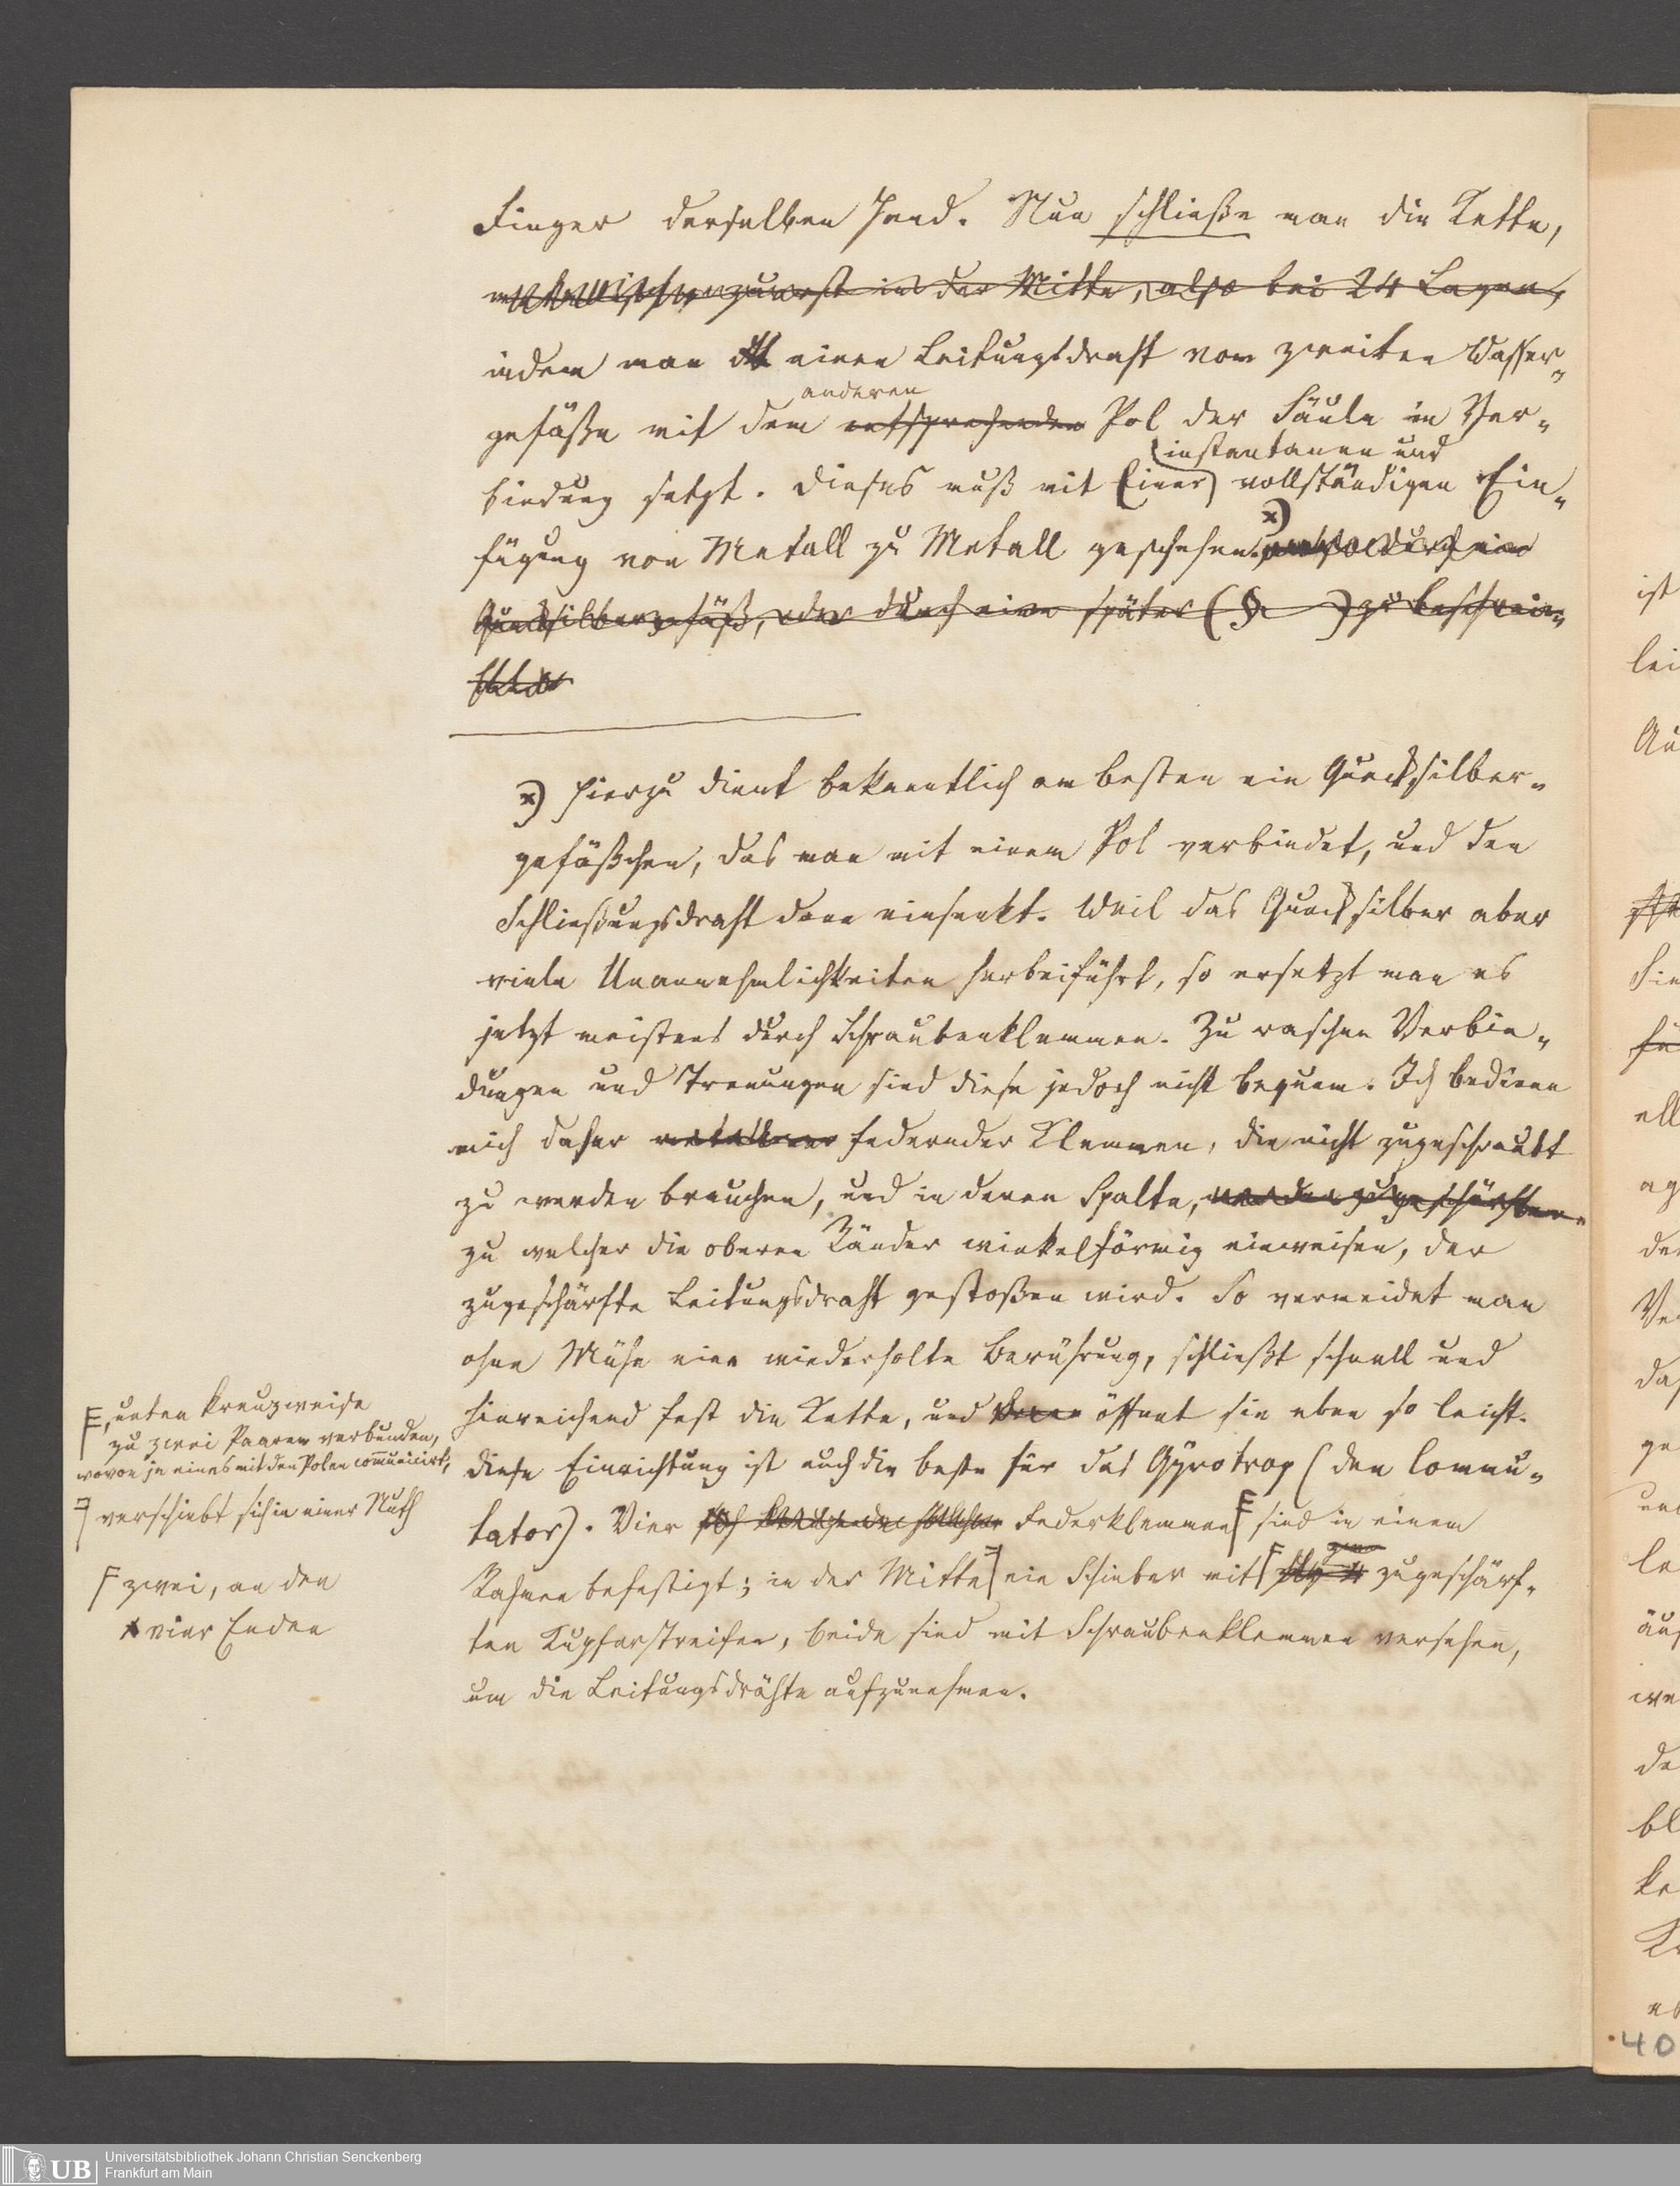 Finger derselben Hand. Nun schließe man die Kette,
zuerst in der Mitte, also bei 24 Lagen,
indem man einen Leitungsdraht vom zweiten Wasser-
anderen
gefäße mit dem entsprechenden Pol der Säule in Ver-
instantanen und
bindung setzt. Dieses muß mit Einer vollständigen Ein-
x)
fügung von Metall zu Metall geschehen. durch ein
Quecksilbergefäß, oder durch eine später (§. ) zu beschrei-
x) Hierzu dient bekanntlich am besten ein Quecksilber-
gefäßchen, das man mit einem Pol verbindet, und den
Schließungsdraht dann einsenkt. Weil das Quecksilber aber
viele Unannehmlichkeiten herbeiführt, so ersetzt man es
jetzt meistens durch Schraubenklemmen. Zu raschen Verbin-
dungen und Trenungen sind diese jedoch nicht bequem. Ich bediene
mich daher metallener federnder Klemmen, die nicht zugeschraubt
zu werden brauchen, und in deren Spalte, zugeschärften
zu welcher die oberen Ränder winkelförmig einweisen, der
zugeschärfte Leitungsdraht gestoßen wird. So vermeidet man
ohne Mühe eine wiederholte Berührung, schließt schnell und
hinreichend fest die Kette, und öffnet sie eben so leicht.
Diese Einrichtung ist auch die beste für das Gyrotrop (den Commu-
tator). Vier Federklemmen sind in einem
Rahmen befestigt; in der Mitte ein Schieber mit zugeschärf-
ten Kupferstreifen, beide sind mit Schraubenklemmen versehen,
um die Leitungsdrähte aufzunehmen.
, unten kreuzweise
zu zwei Paaren verbunden,
wovon je eines mit den Polen com̅unicirt,
verschiebt sich in einer Nuth
zwei, an den
vier Enden
ist
lei
Au
ell
ag
der
Ver
das
ge
le
we
de
bl
ke
40
UB
Universitätsbibliothek Johann Christian Senckenberg
Frankfurt am Main